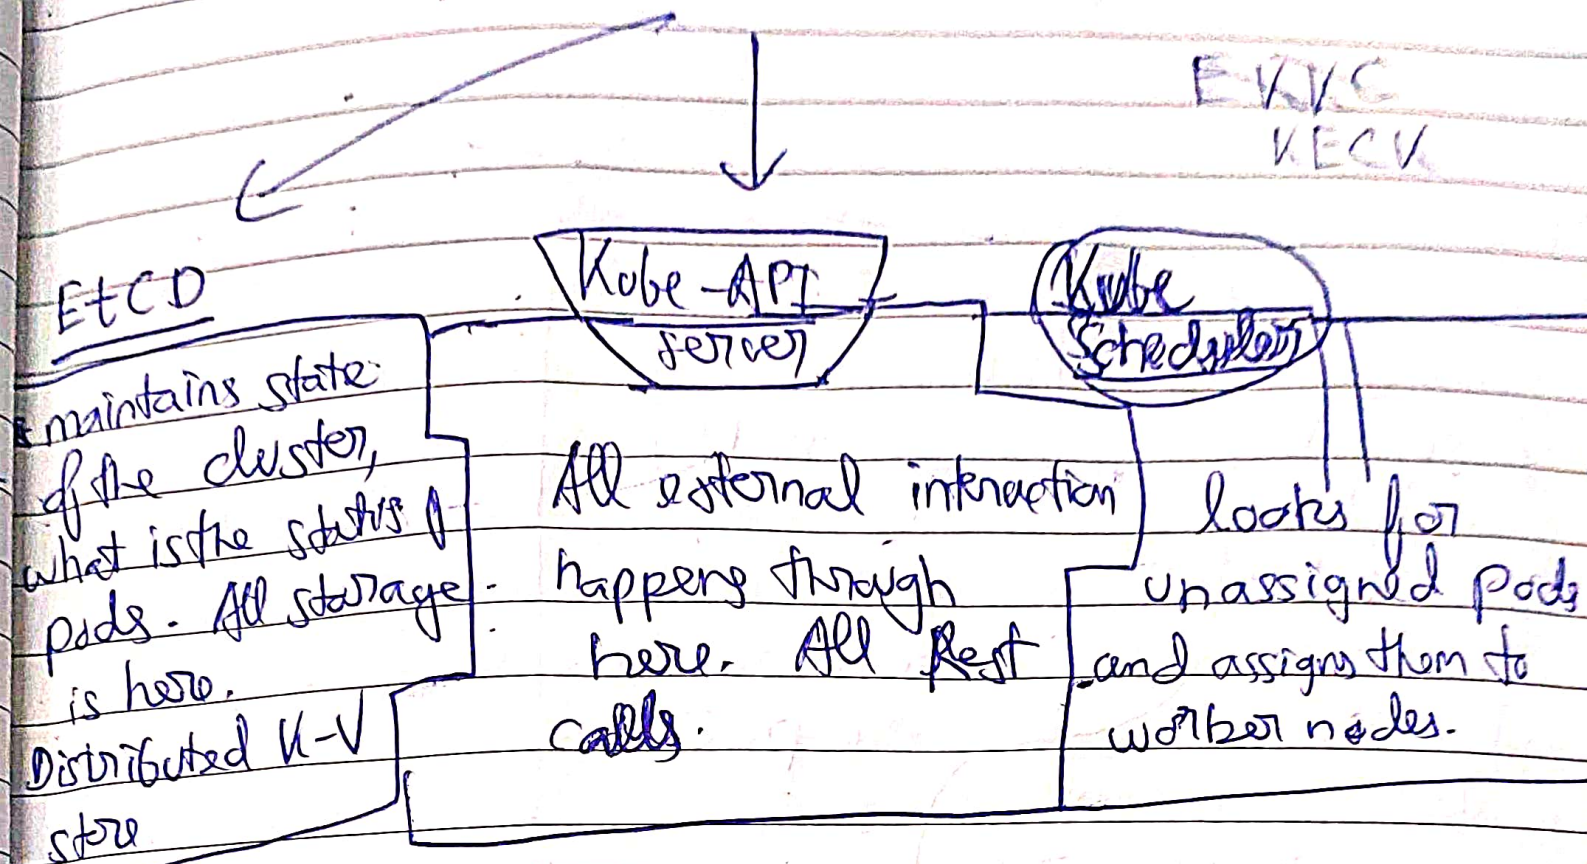 EKKC
KECK
EtCD
maintains state
of the cluster,
what is the status of
pods. All storage
is here.
Distributed K-V
store
Kube-API
server
All external interaction
happens through
here. All Rest
calls.
Kube
Scheduler
looks for
unassigned pods
and assigns them to
worker nodes.